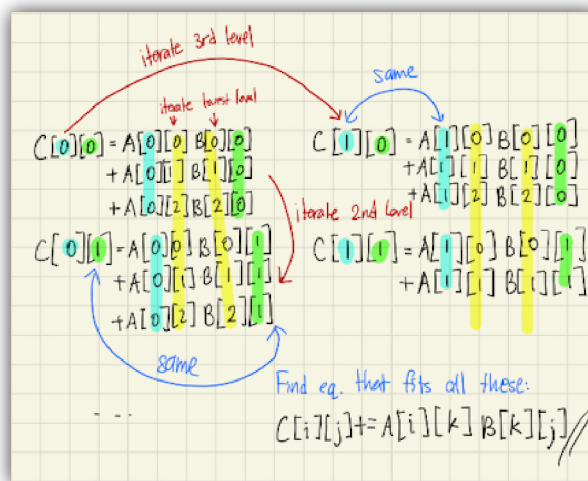 iterate 3rd level
same
iterate lowest level
C[0][0] = A[0][0] B[0][0]
+A[0][1] B[1][0]
+A[0][2] B[2][0]
C[1][0] = A[1][0] B[0][0]
+A[1][1] B[1][0]
+A[1][2] B[2][0]
iterate 2nd level
C[0][1] = A[0][0] B[0][1]
+A[0][1] B[1][1]
+A[0][2] B[2][1]
C[1][1] = A[1][0] B[0][1]
+A[1][1] B[1][1]
same
Find eq. that fits all these:
C[i][j]+=A[i][k] B[k][j]//
- - -